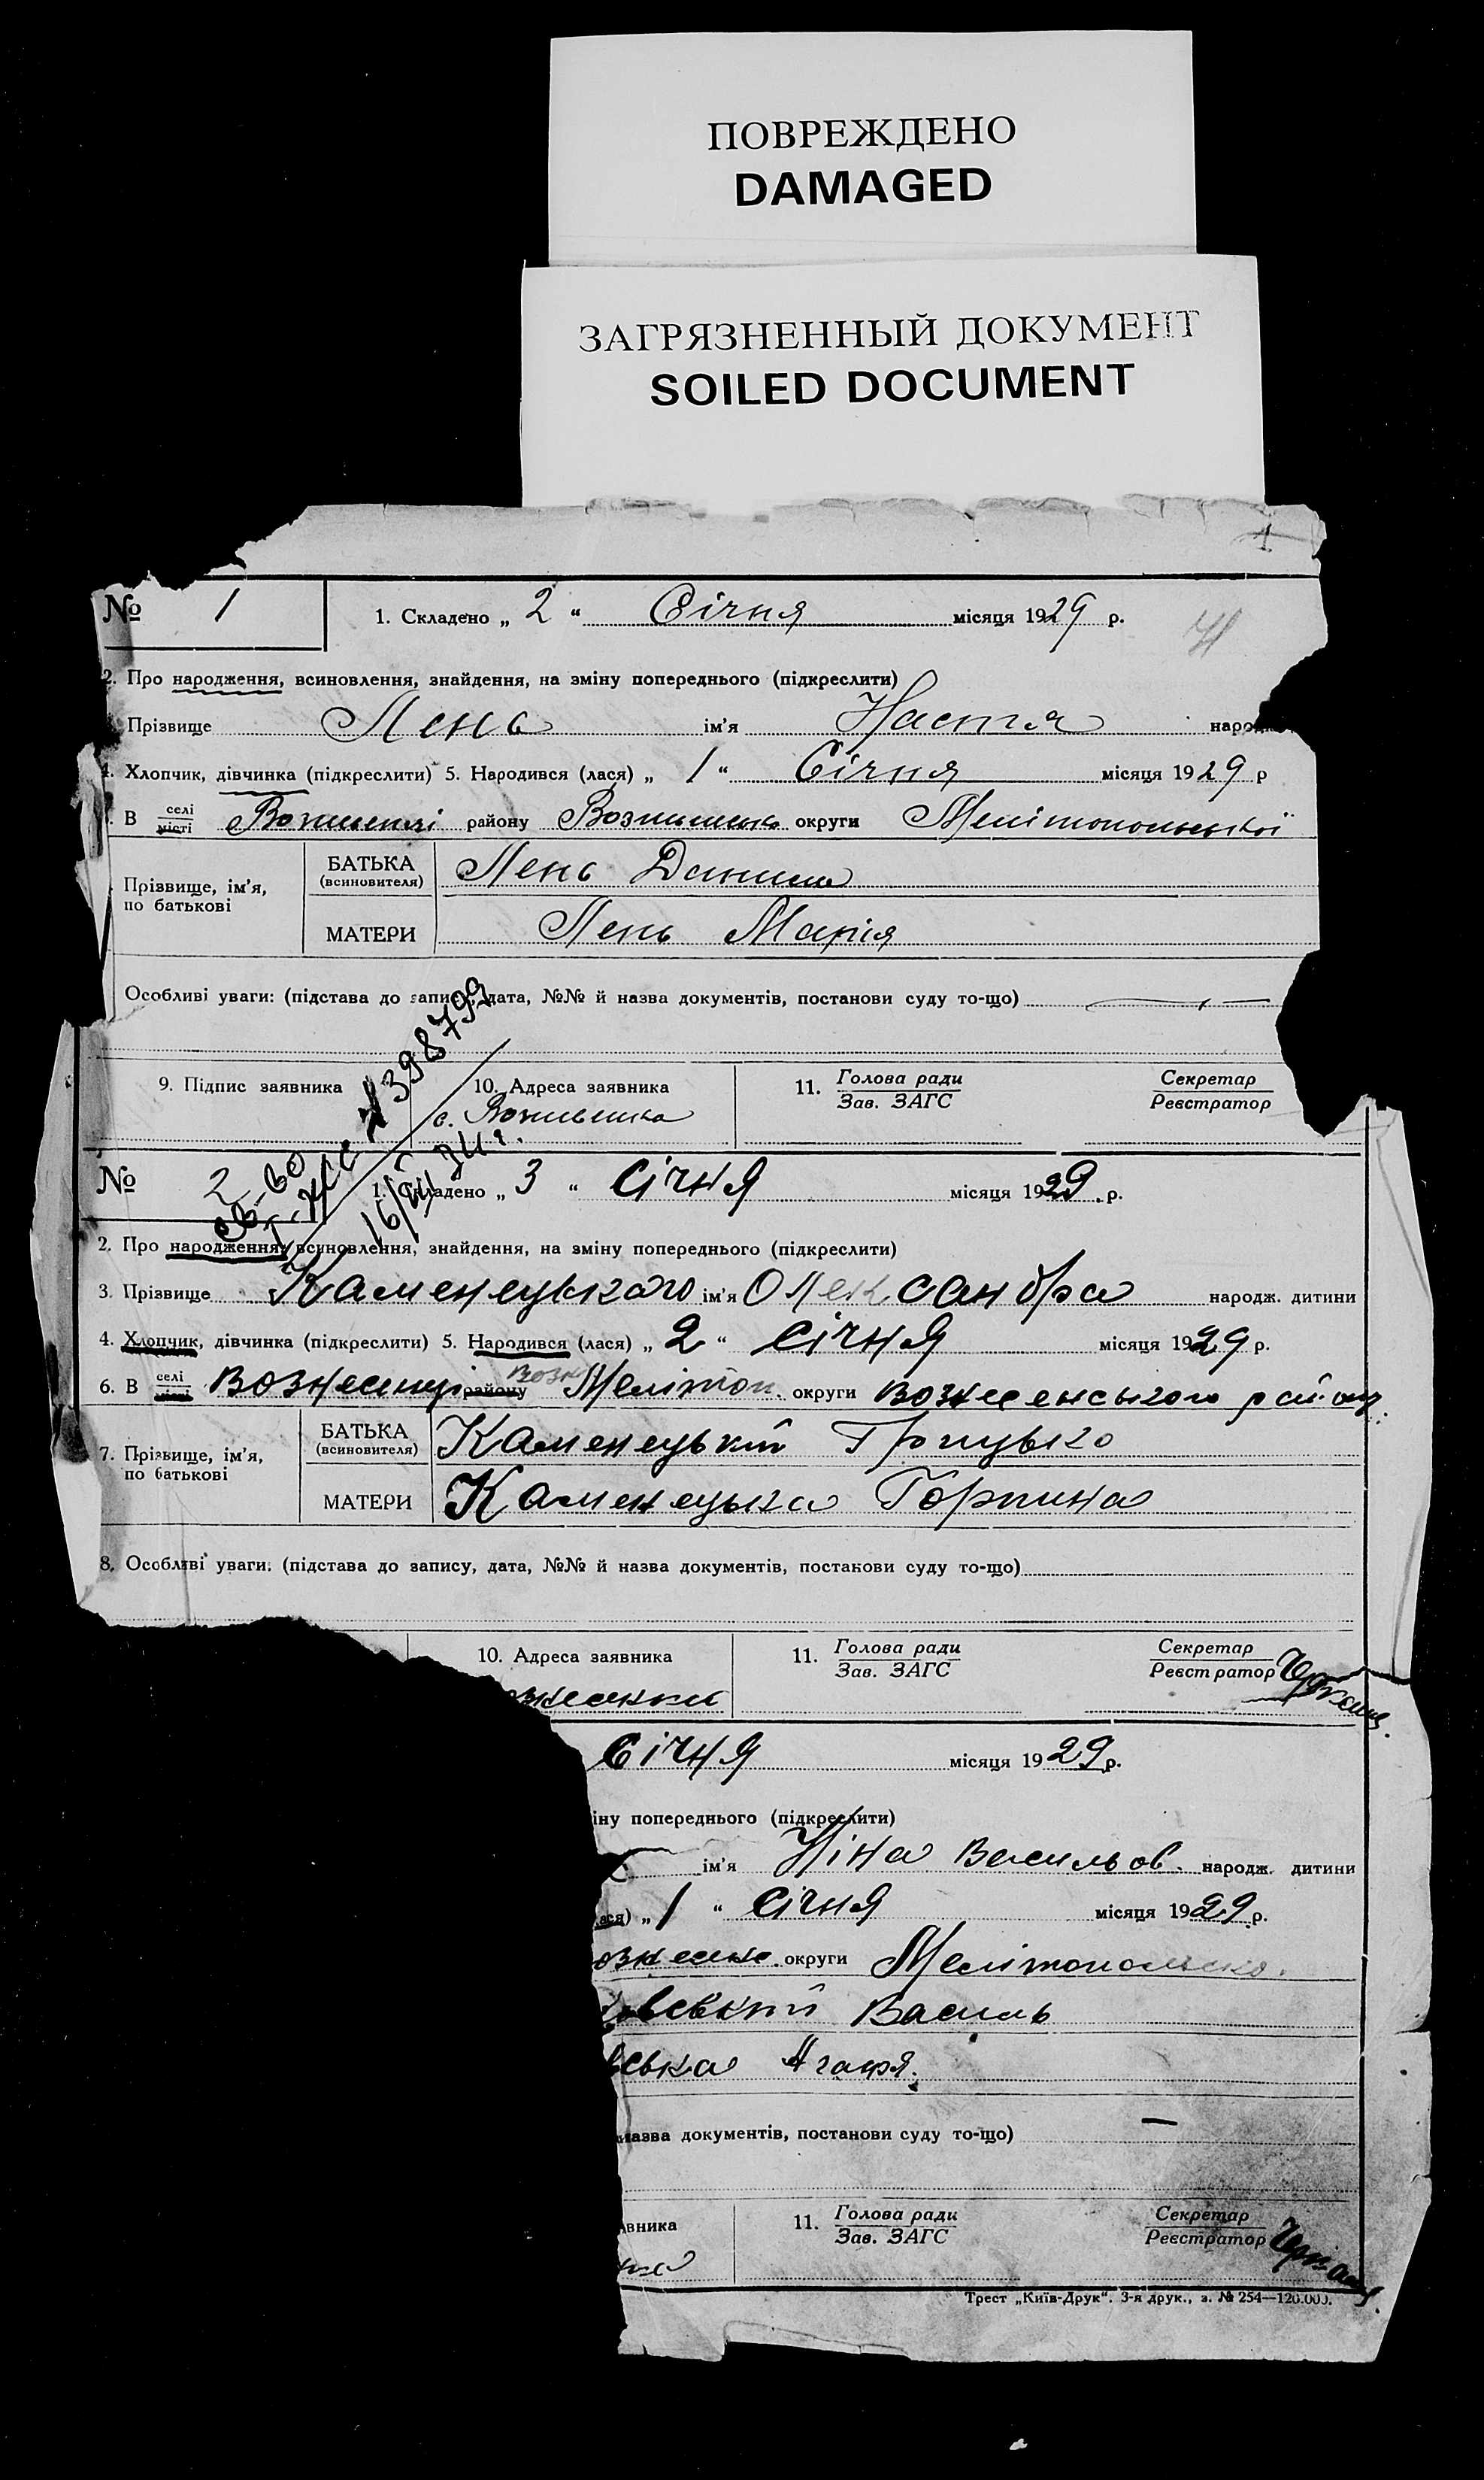 ПОВРЕЖДЕНО
DAMAGED
ЗАГРЯЗНЕННЫЙ ДОКУМЕНТ
SOILED DOCUMENT
1
№ 1 1. Складено „ 2 “ Січня місяця 1929 р.
2. Про народження, всиновлення, знайдення, на зміну попереднього (підкреслити)
Прізвище Лень ім'я Настя народж
4. Хлопчик, дівчинка (підкреслити) 5. Народився (лася) „ 1 “ Січня місяця 1929 р
В селі місті району округи Мелітопольської
Прізвище, ім'я, по батькові
БАТЬКА (всиновителя) Лень Данило
МАТЕРИ Лень Марія
Особливі уваги: (підстава до запису, дата, №№ й назва документів, постанови суду то-що)
9. Підпис заявника 10. Адреса заявника 11. Голова ради Зав. ЗАГС Секретар Реєстратор
с.
398793
№ 2 1. Складено „ 3 “ Січня місяця 1929 р.
2. Про народження, всиновлення, знайдення, на зміну попереднього (підкреслити)
3. Прізвище Каменецького ім'я Олександра народж. дитини
4. Хлопчик, дівчинка (підкреслити) 5. Народився (лася) „ 2 “ січня місяця 1929 р.
6. В селі місті Вознесенці району Возн Мелітоп. округи Вознесенського району
7. Прізвище, ім'я, по батькові
БАТЬКА (всиновителя) Каменецький Грицько
МАТЕРИ Каменецька Горпина
8. Особливі уваги: (підстава до запису, дата, №№ й назва документів, постанови суду то-що)
10. Адреса заявника 11. Голова ради Зав. ЗАГС Секретар Реєстратор
Січня місяця 1929 р.
іну попереднього (підкреслити)
ім'я Ніна Васильов. народж. дитини
ася) „ 1 “ Січня місяця 1929 р.
округи
вський Василь
вська Агафя.
назва документів, постанови суду то-що) —
вника 11. Голова ради Зав. ЗАГС Секретар Реєстратор
Трест „Київ-Друк“. 3-я друк., з. № 254—120.000.